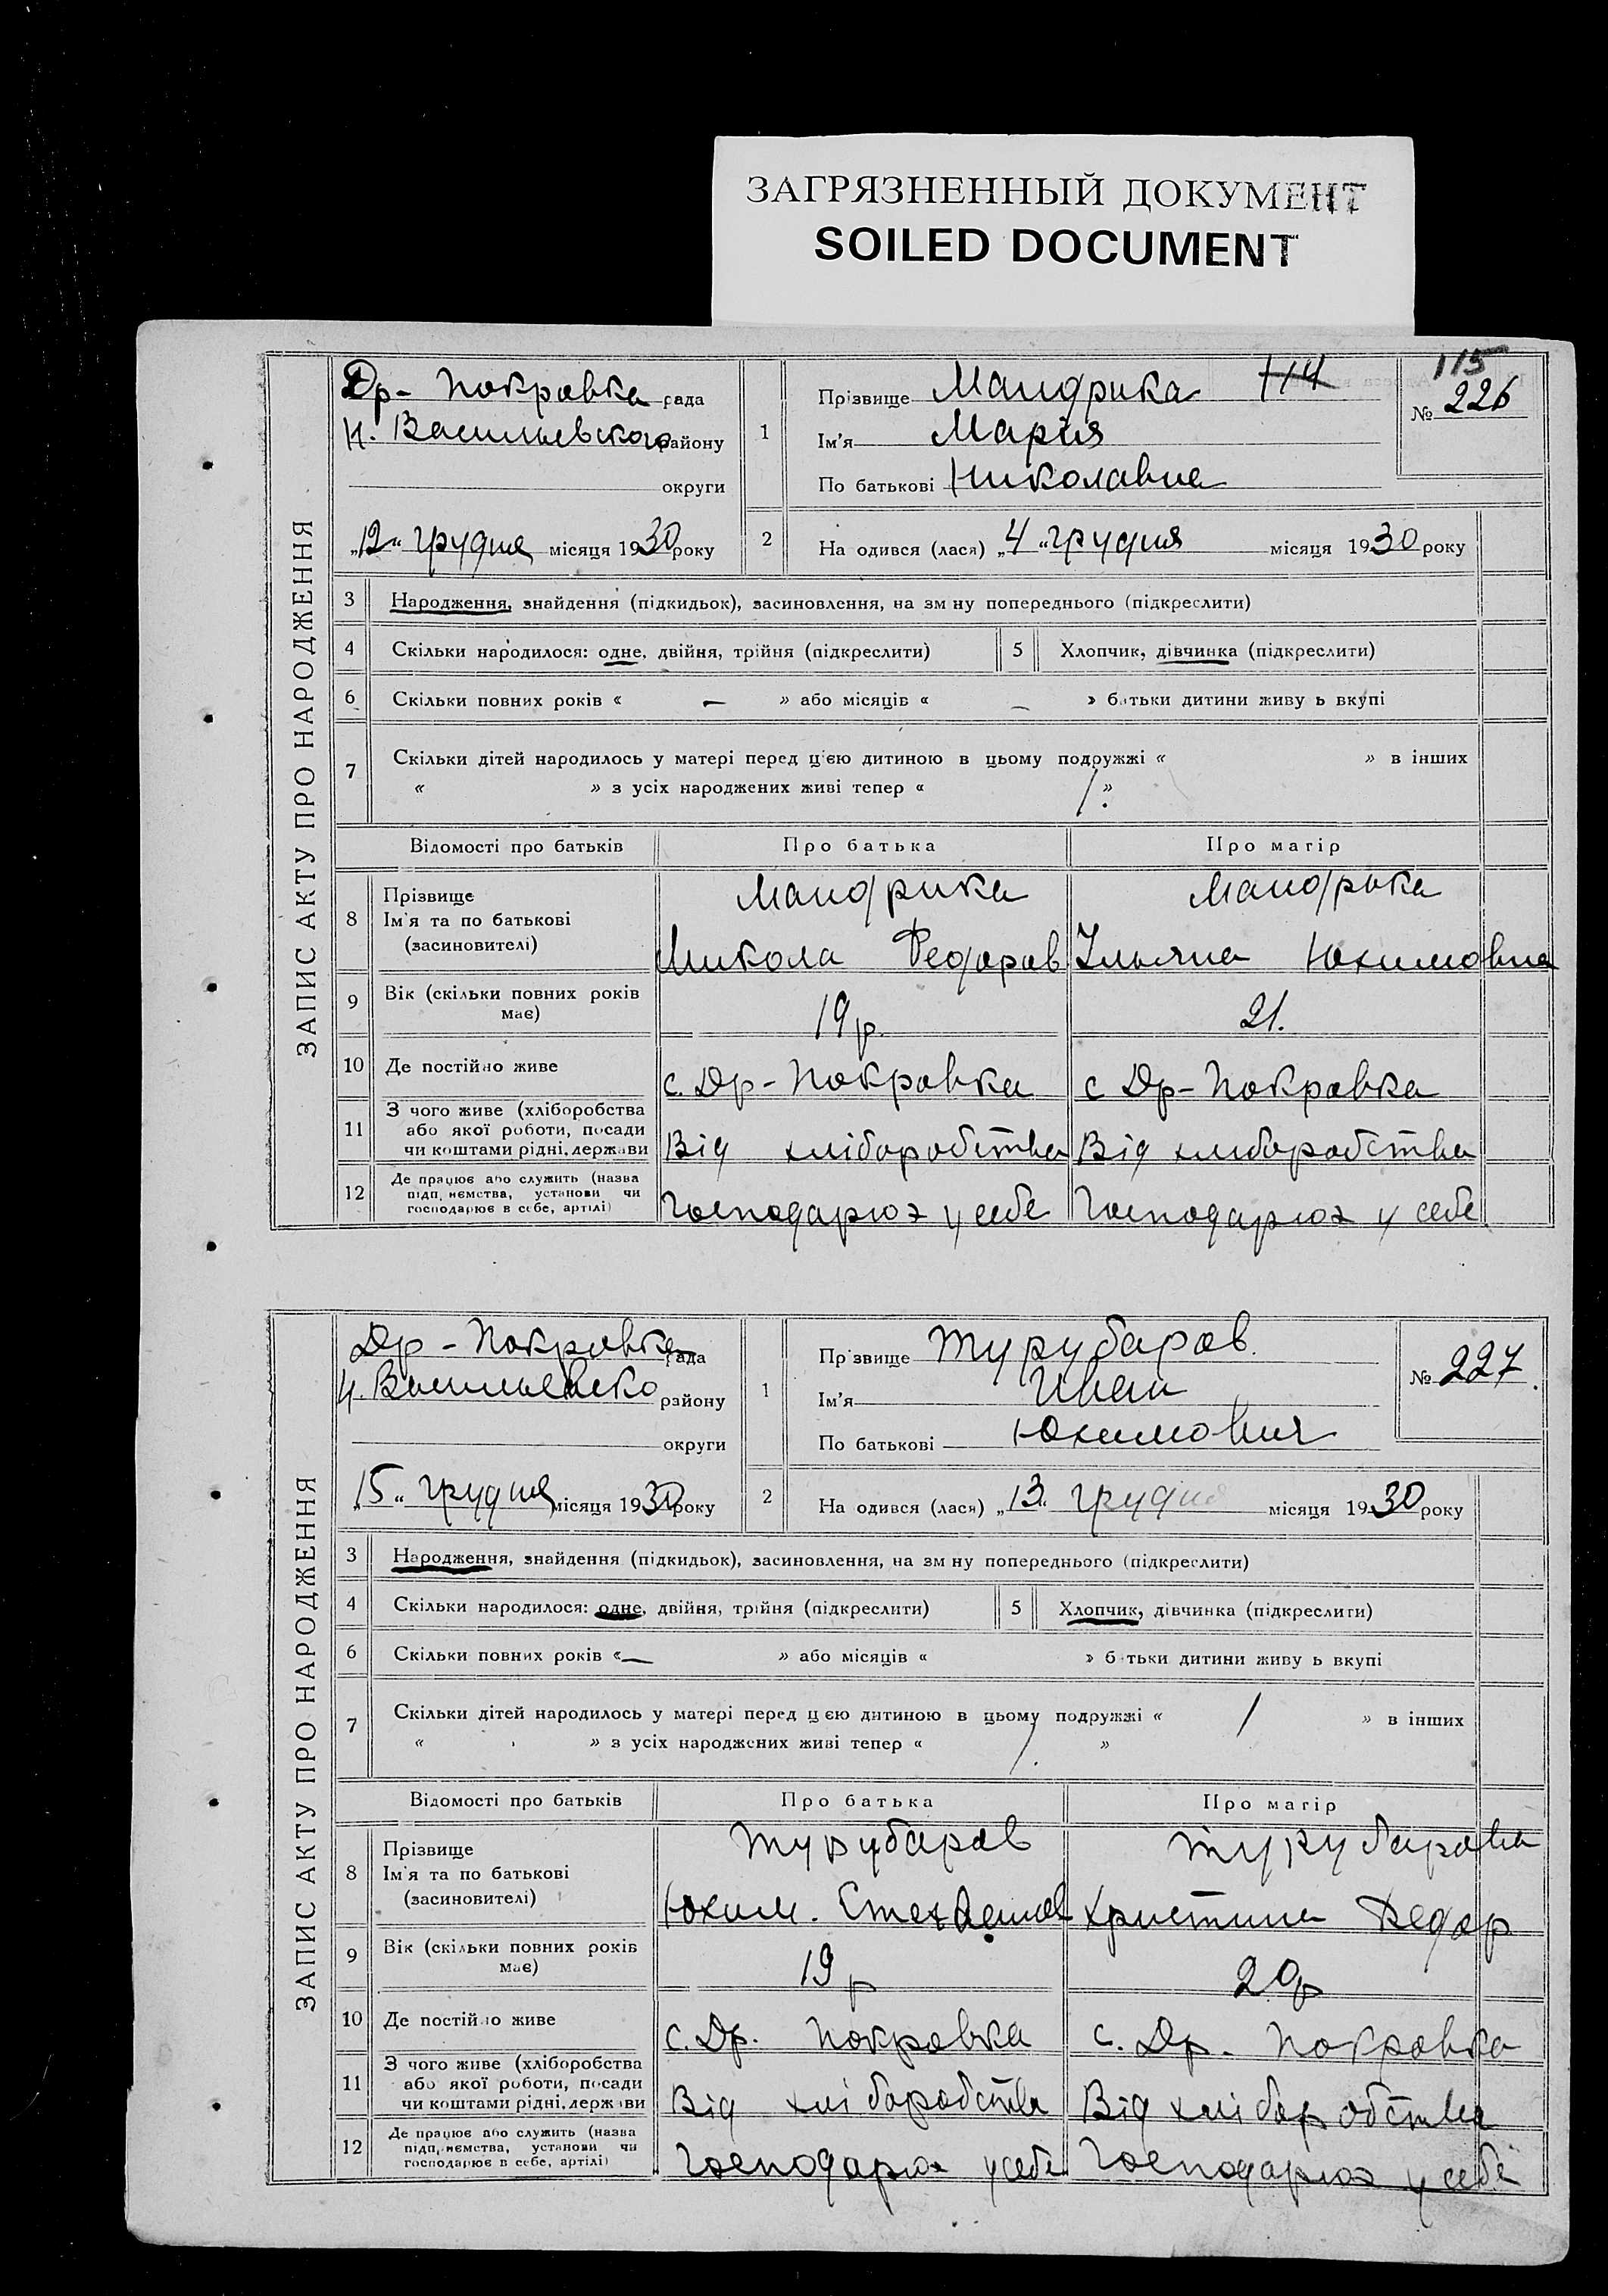 ЗАГРЯЗНЕННЫЙ ДОКУМЕНТ
SOILED DOCUMENT
115
114
ЗАПИС АКТУ ПРО НАРОДЖЕННЯ
Др- Покровка рада
Н. Васильевского району
округи
„12" грудня місяця 1930 року
1
Прізвище Мандрика
Ім'я Мария
По батькові Николавна
№ 226
2
На одився (лася) „4" грудня місяця 1930 року
3 Народження, знайдення (підкидьок), засиновлення, на зм ну попереднього (підкреслити)
4 Скільки народилося: одне, двійня, трійня (підкреслити) 5 Хлопчик, дівчинка (підкреслити)
6 Скільки повних років « — » або місяців « — » батьки дитини живу ь вкупі
7 Скільки дітей народилось у матері перед цією дитиною в цьому подружжі « » в інших
« » з усіх народжених живі тепер « 1. »
Відомості про батьків Про батька Про матір
8 Прізвище Мандрика Мандрика
Ім'я та по батькові
(засиновителі) Микола Федоров Ульяна Юхимовна
9 Вік (скільки повних років має) 19 р. 21.
10 Де постійно живе с. Др- Покровка с Др- Покровка
11 З чого живе (хліборобства
або якої роботи, посади
чи коштами рідні, держави Від хліборобства Від хлиборобства
12 Де працює або служить (назва
підп. иємства, установи чи
господарює в себе, артілі) Господарюэ у себе Господарюэ у себе
ЗАПИС АКТУ ПРО НАРОДЖЕННЯ
Др - Покровка рада
Н. Васильевско району
округи
„15" грудня місяця 1930 року
1
Пр звище Турубаров.
Ім'я Иван
По батькові Юхимович
№ 227.
2
На одився (лася) „13" грудня місяця 1930 року
3 Народження, знайдення (підкидьок), засиновлення, на зм ну попереднього (підкреслити)
4 Скільки народилося: одне, двійня, трійня (підкреслити) 5 Хлопчик, дівчинка (підкреслити)
6 Скільки повних років « — » або місяців « » б тьки дитини живу ь вкупі
7 Скільки дітей народилось у матері перед цією дитиною в цьому подружжі « 1 » в інших
« » з усіх народжених живі тепер « 1. »
Відомості про батьків Про батька Про матір
8 Прізвище Турубаров Турубарова
Ім'я та по батькові
(засиновителі) Юхим. Христина Федор
9 Вік (скільки повних років має) 19 р 20 р
10 Де постій о живе с. Др. Покровка с. Др. Покровка
11 З чого живе (хліборобства
або якої роботи, посади
чи коштами рідні, держ ви Від хліборобства Від хліборобства
12 Де працює або служить (назва
підп. иємства, установи чи
господарює в себе, артілі) Господарюэ у себе Господарюэ у себе